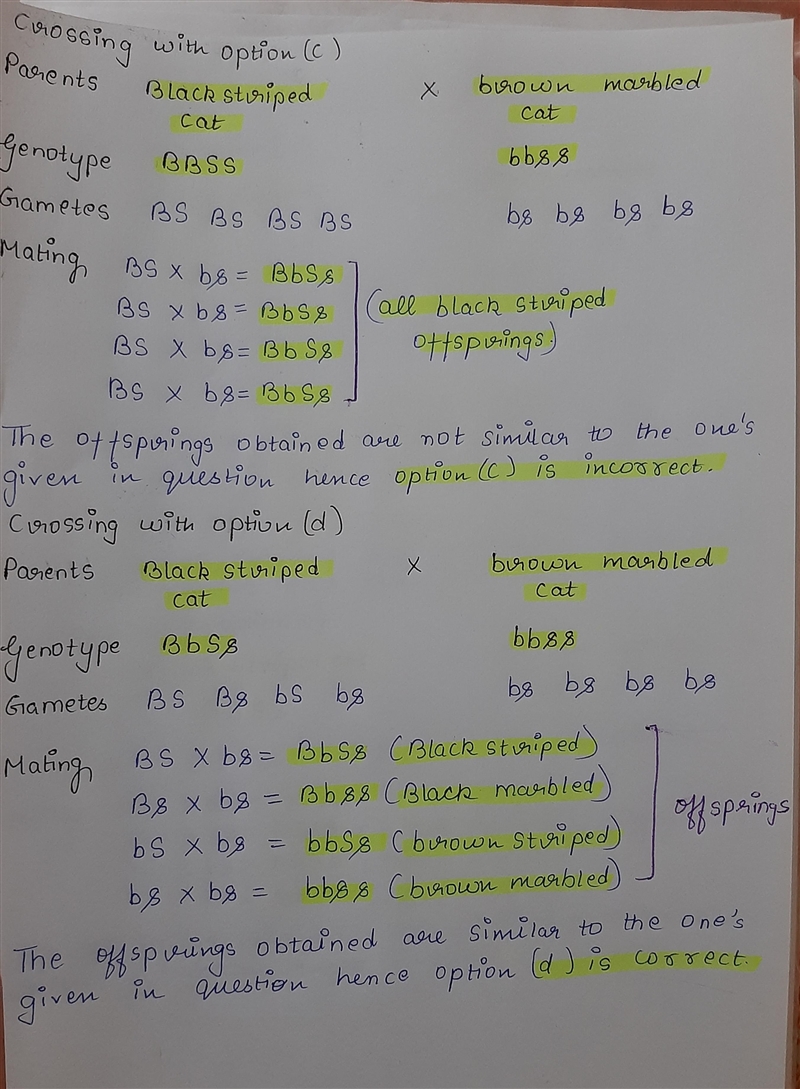 Crossing with option (c)
Parents Black striped cat × brown marbled cat
Genotype BBSS bbss
Gametes BS BS BS BS bs bs bs bs
Mating BS × bs = BbSs
BS × bs = BbSs
BS × bs = BbSs
BS × bs = BbSs
(all black striped
offsprings)
The offsprings obtained are not similar to the one's
given in question hence option (c) is incorrect.
Crossing with option (d)
Parents Black striped cat × brown marbled cat
Genotype BbSs bbss
Gametes BS Bs bS bs bs bs bs bs
Mating BS × bs = BbSs (Black striped)
Bs × bs = Bbss (Black marbled)
bS × bs = bbSs (brown striped)
bs × bs = bbss (brown marbled)
offsprings
The offsprings obtained are similar to the one's
given in question hence option (d) is correct.